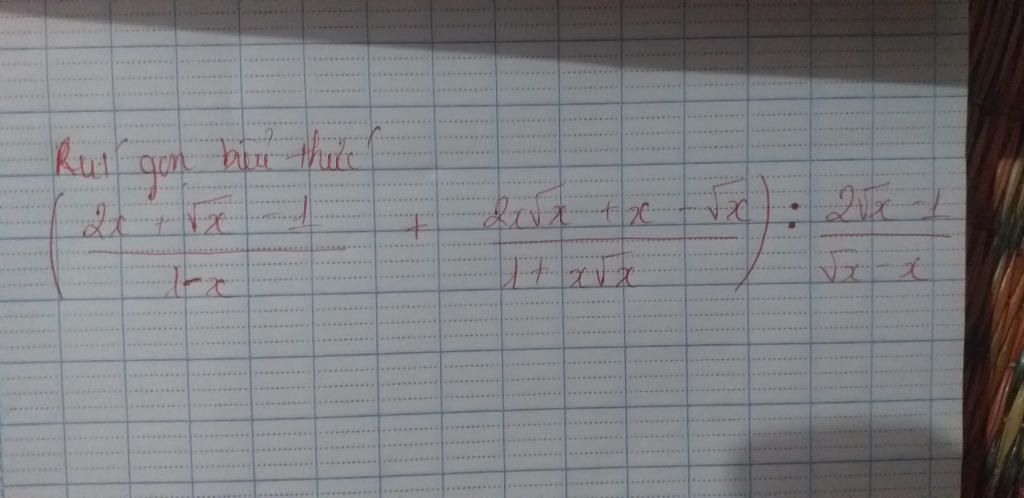 Rút gọn biểu thức
( \frac{2x + \sqrt{x} - 1}{1 - x} + \frac{2x\sqrt{x} + x - \sqrt{x}}{1 + x\sqrt{x}} ) : \frac{2\sqrt{x} - 1}{\sqrt{x} - x}